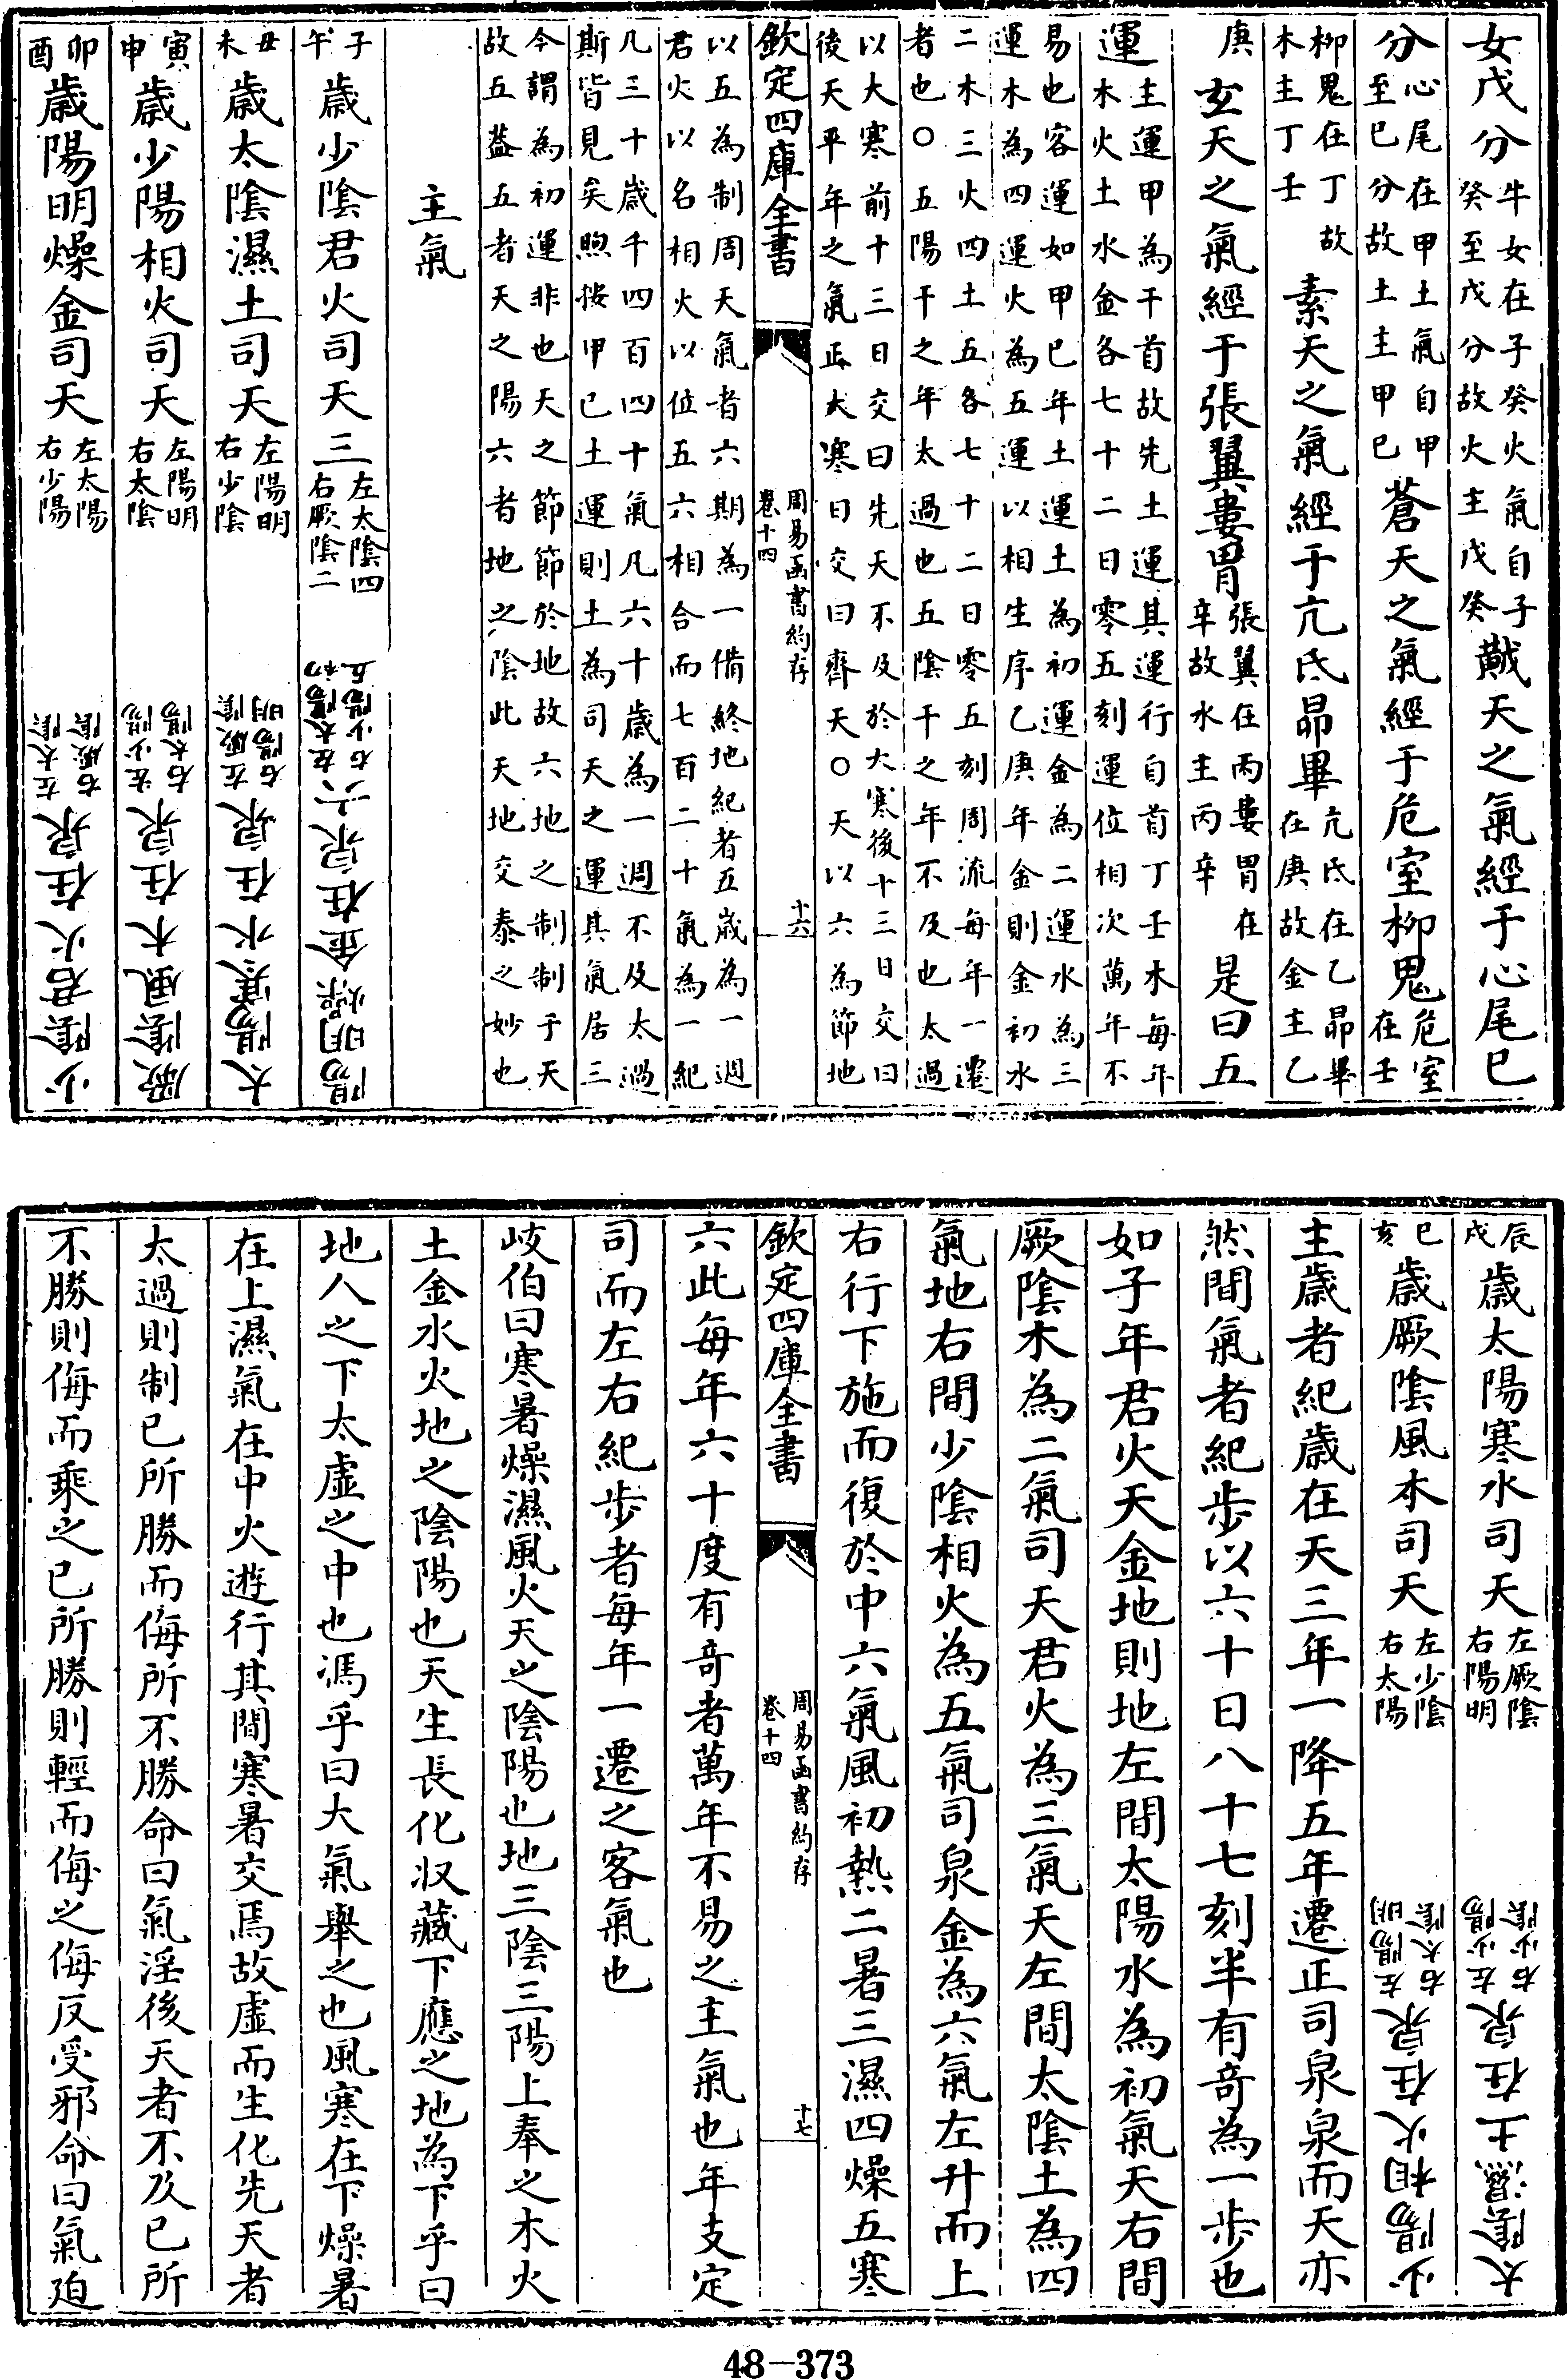 女戊分牛女在子癸火氣自子
癸至戊分故火主戊癸黅天之氣經于心尾已
分心尾在甲土氣自甲
至已分故土主甲已蒼天之氣經于危室柳鬼危室
在壬
柳鬼在丁故
木主丁壬素天之氣經于亢氐昴畢亢氐在乙昴畢
在庚故金主乙
庚玄天之氣經于張翼婁胃張翼在丙婁胃在
辛故水主丙辛是曰五
運主運甲為干首故先土運其運行自首丁壬木每年
木火土水金各七十二日零五刻運位相次萬年不
易也客運如甲已年土運土為初運金為二運水為三
運木為四運火為五運以相生序乙庚年金則金初水
二木三火四土五各七十二日零五刻周流每年一遷
者也○五陽干之年太過也五陰干之年不及也太過
以大寒前十三日交曰先天不及於大寒後十三日交曰
後天平年之氣正大寒日交曰齊天○天以六為節地
欽定四庫全書
周易函書約存
卷十四
十六
以五為制周天氣者六期為一備終地紀者五歲為一週
君火以名相火以位五六相合而七百二十氣為一紀
凡三十歲千四百四十氣凡六十歲為一週不及太過
斯皆見矣煦按甲已土運則土為司天之運其氣居三
今謂為初運非也天之節節於地故六地之制制于天
故五蓋五者天之陽六者地之陰此天地交泰之妙也
主氣
子午歲少陰君火司天三左太陰四
右厥陰二
陽明燥金在泉六右少陽五
左太陽初
丑未歲太陰濕土司天左陽明
右少陰
太陽寒水在泉右陽明
左厥陰
寅申歲少陽相火司天左陽明
右太陰
厥陰風木在泉右太陽
左少陽
卯酉歲陽明燥金司天左太陽
右少陽
少陰君火在泉右厥陰
左太陰
辰戌歲太陽寒水司天左厥陰
右陽明
太陰濕土在泉右少陰
左少陽
巳亥歲厥陰風木司天左少陰
右太陽
少陽相火在泉右太陰
左陽明
主歲者紀歲在天三年一降五年遷正司泉泉而天亦
然間氣者紀步以六十日八十七刻半有奇為一步也
如子年君火天金地則地左間太陽水為初氣天右間
厥陰木為二氣司天君火為三氣天左間太陰土為四
氣地右間少陰相火為五氣司泉金為六氣左升而上
右行下施而復於中六氣風初熱二暑三濕四燥五寒
欽定四庫全書
周易函書約存
卷十四
十七
六此每年六十度有奇者萬年不易之主氣也年支定
司而左右紀步者每年一遷之客氣也
岐伯曰寒暑燥濕風火天之陰陽也地三陰三陽上奉之木火
土金水火地之陰陽也天生長化收藏下應之地為下乎曰
地人之下太虛之中也馮乎曰大氣舉之也風寒在下燥暑
在上濕氣在中火遊行其間寒暑交焉故虛而生化先天者
太過則制已所勝而侮所不勝命曰氣淫後天者不及已所
不勝則侮而乘之已所勝則輕而侮之侮反受邪命曰氣廹
48-373